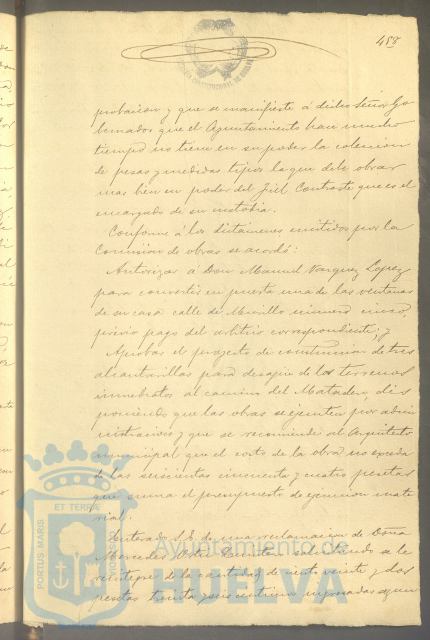 458
probacion y que se manifieste á dicho Señor Go-
bernador que el Ayuntamiento hace mucho
tiempo no tiene en su poder la coleccion
de pesas y medidas tipos la que debe obrar
mas bien en poder del Fiel Contraste que es el
encargado de su custodia.
Conforme á los dictámenes emitidos por la
Comision de obras se acordó:
Autorizar á Don Manuel Vazquez Lopez
para convertir en puerta una de las ventanas
de su casa calle de Murillo número cinco,
previo pago del arbitrio correspondiente; y
Aprobar el proyecto de construccion de tres
alcantarillas para desagüe de los terrenos
inmediatos al camino del Matadero, dis-
poniendo que las obras se ejecuten por admi-
nistracion y que se recomiende al Arquitecto
municipal que el costo de la obra no esceda
de las seiscientas cincuenta y cuatro pesetas
que suma el presupuesto de ejecucion mate-
rial.
Enterado S.E. de una reclamacion de Doña
Mercedes solicitando se le
reintegre de la cantidad de ciento veinte y dos
pesetas treinta y seis centimos ingresadas
PORTUS MARIS
ET TERRÆ
Ayuntamiento de
HUELVA